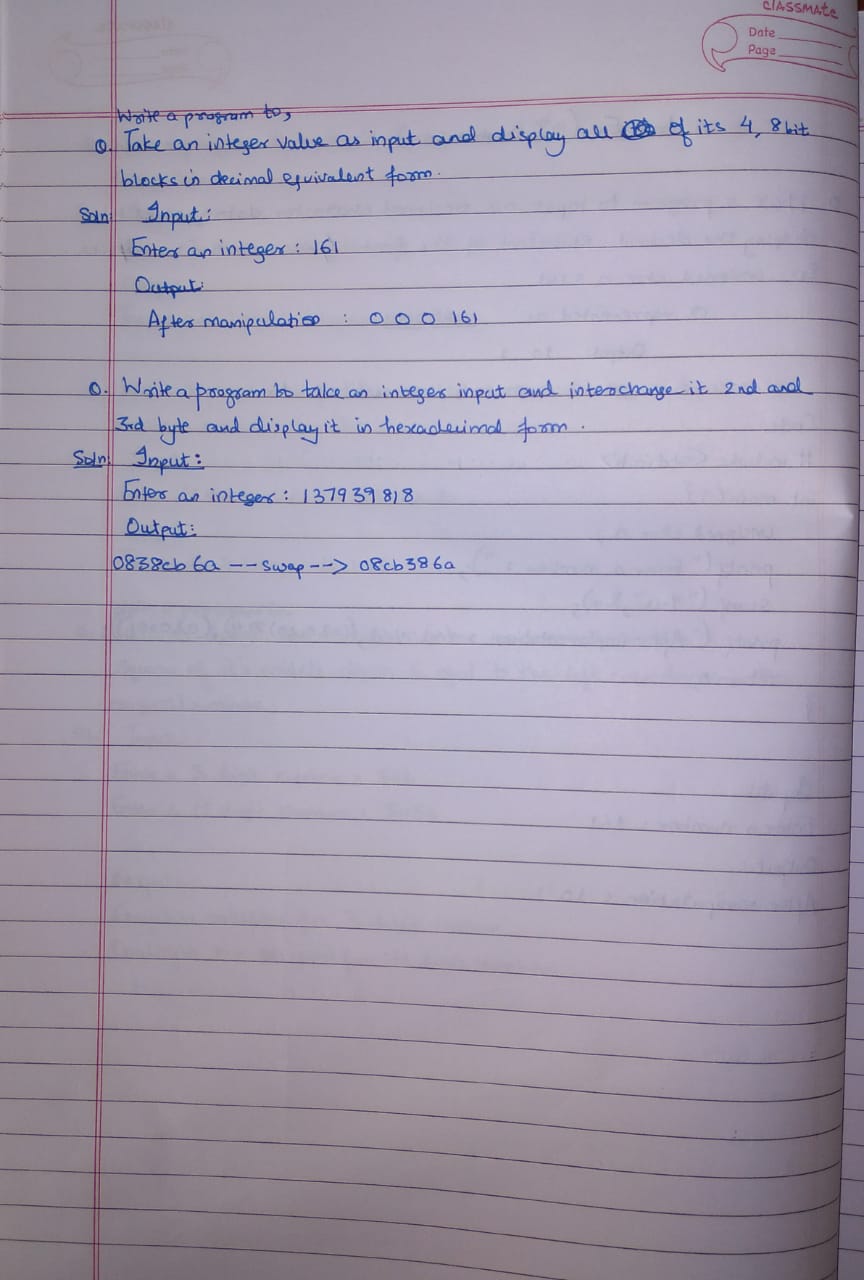 classmate
Date
Page
Write a program to,
Q. Take an integer value as input and display all of its 4, 8 bit
blocks in decimal equivalent form.
Soln: Input:
Enter an integer : 161
Output:
After manipulation : 0 0 0 161
Q. Write a program to take an integer input and interchange it 2nd and
3rd byte and display it in hexadecimal form.
Soln: Input:
Enter an integer : 137939818
Output:
0838cb6a -- swap --> 08cb386a